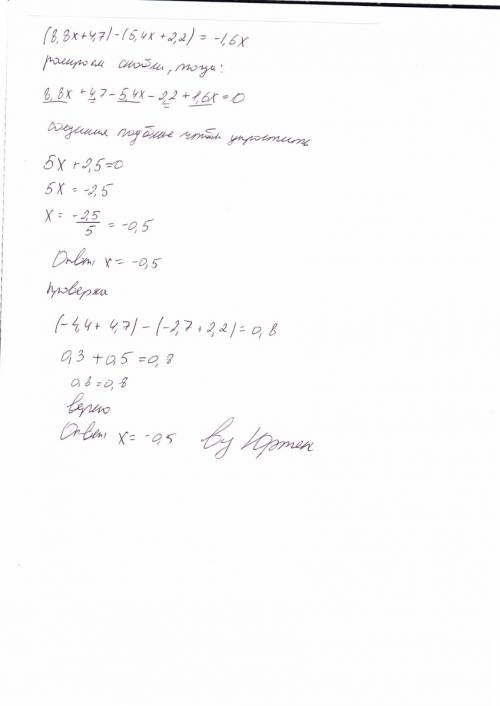 (8,8x+4,7)-(5,4x+2,2) = -1,6x
раскроем скобки, тогда:
8,8x + 4,7 - 5,4x - 2,2 + 1,6x = 0
соединим подобные чтобы упростить
5x + 2,5 = 0
5x = -2,5
x = -2,5/5 = -0,5
Ответ: x = -0,5
Проверка
(-4,4 + 4,7) - (-2,7 + 2,2) = 0,8
0,3 + 0,5 = 0,8
0,8 = 0,8
верно
Ответ: x = -0,5 by Юртен